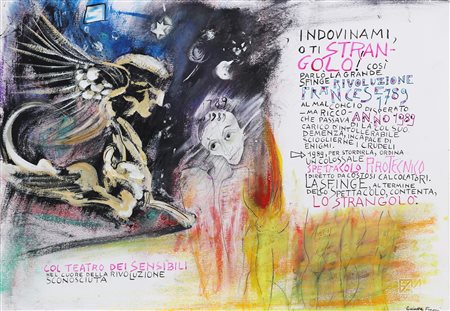 INDOVINAMI,
O TI STRAN-
GOLO! COSÌ
PARLO LA GRANDE
SFINGE RIVOLUZIONE
FRANCESE 1789
AL MALCONCIO
MA RICCO DISPERATO
CHE PASSAVA ANNO 1989
CARICO D'INTOLLERABILE
DEMENZA, INCAPACE DI
SCIOGLIERNE I CRUDELI
ENIGMI.
1989, PER STORDIRLA, ORDINA
UN COLOSSALE
SPETTACOLO PIROTECNICO
DIRETTO DA COSTOSI CALCOLATORI.
LA SFINGE, AL TERMINE
DELLO SPETTACOLO, CONTENTA,
LO STRANGOLÒ.
COL TEATRO DEI SENSIBILI
NEL CUORE DELLA RIVOLUZIONE
SCONOSCIUTA